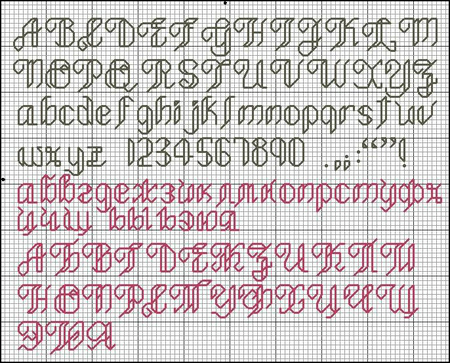 A B C D E F G H I J K L M
N O P Q R S T U V W X Y Z
a b c d e f g h i j k l m n o p q r s t u v
w x y z 1 2 3 4 5 6 7 8 9 0 . , ; : “ ” !
а б в г д е ж з и к л м н о п р с т у ф х
ц ч ш щ ъ ы ь э ю я
А Б В Г Д Е Ж З И К Л М
Н О П Р С Т У Ф Х Ц Ч Ш
Э Ю Я